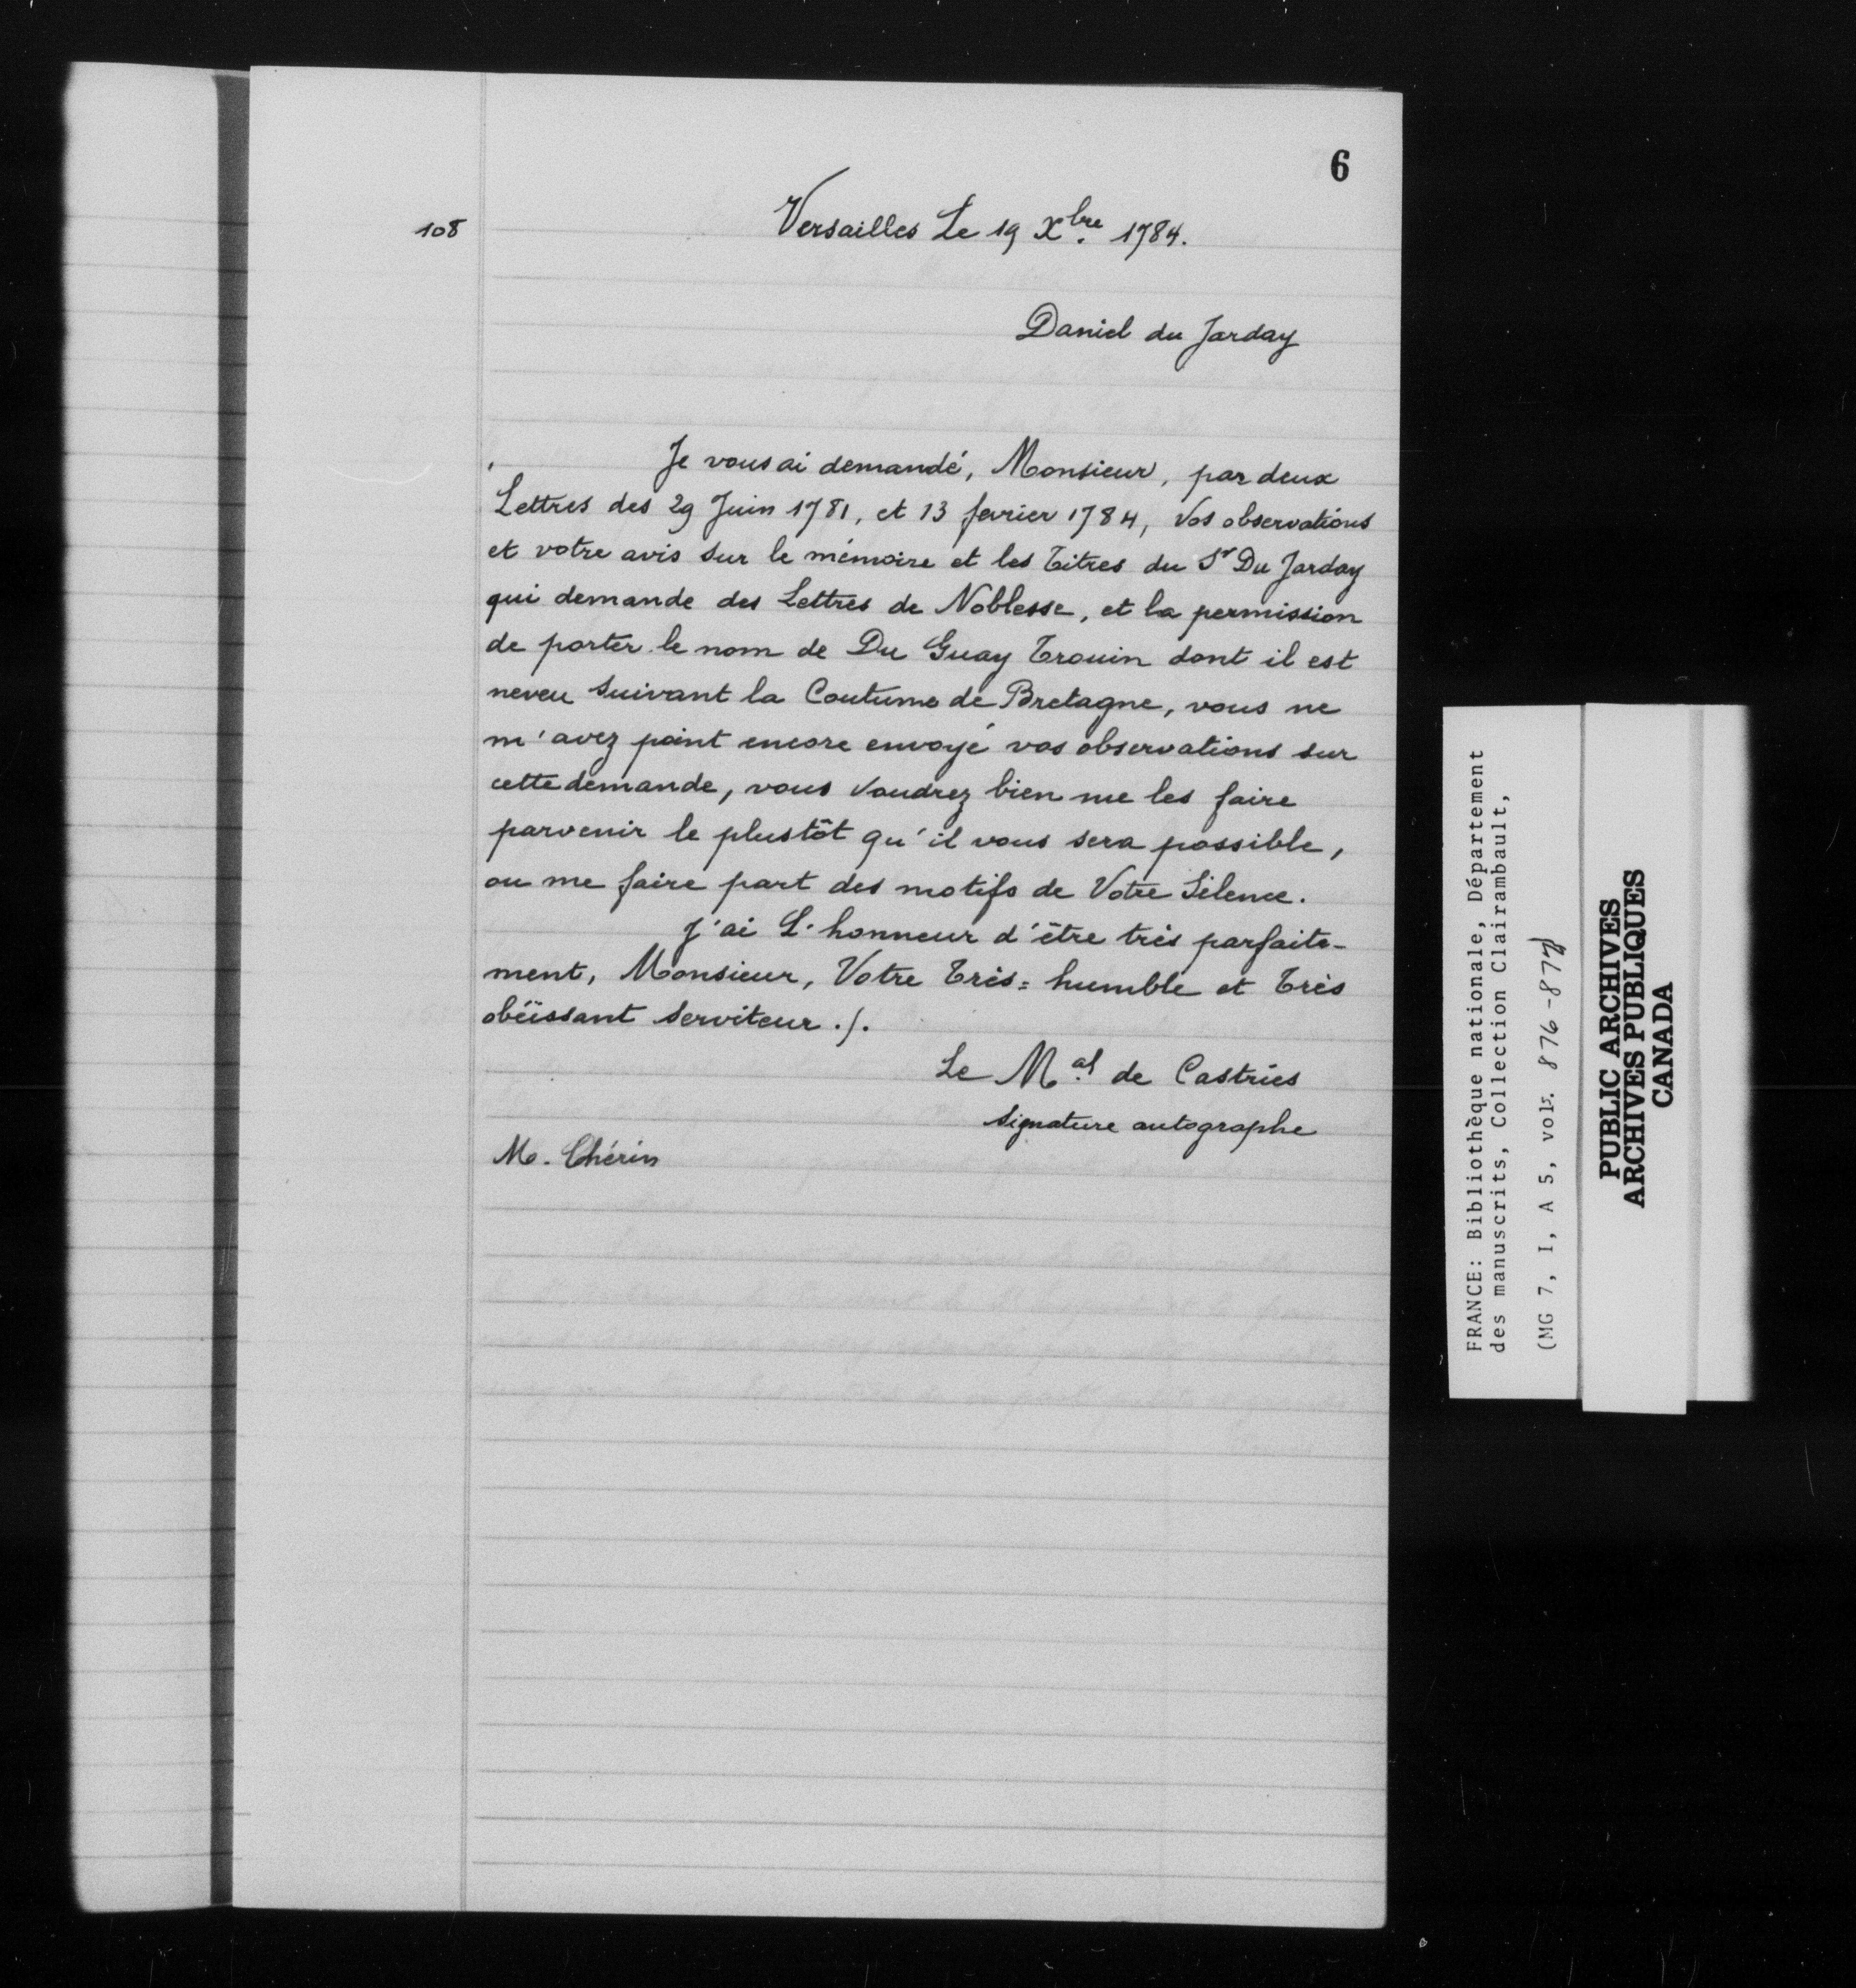 6
108
Versailles Le 19 Xbre 1784.
Daniel du Jarday
Je vous ai demandé, Monsieur, par deux
Lettres des 29 Juin 1781, et 13 fevrier 1784, Vos observations
et votre avis sur le mémoire et les Titres du Sr Du Jarday
qui demande des Lettres de Noblesse, et la permission
de porter le nom de Du Guay Trouin dont il est
neveu suivant la Coutume de Bretagne, vous ne
m'avez point encore envoyé vos observations sur
cette demande, vous voudrez bien me les faire
parvenir le plustôt qu'il vous sera possible,
ou me faire part des motifs de Votre Silence.
J'ai L'honneur d'être très parfaite-
ment, Monsieur, Votre Très=humble et Très
obéissant serviteur ./.
Le Mal de Castries
signature autographe
M. Chérin
FRANCE: Bibliothèque nationale, Département
des manuscrits, Collection Clairambault,
(MG 7, I, A 5, vol. 876-877)
PUBLIC ARCHIVES
ARCHIVES PUBLIQUES
CANADA